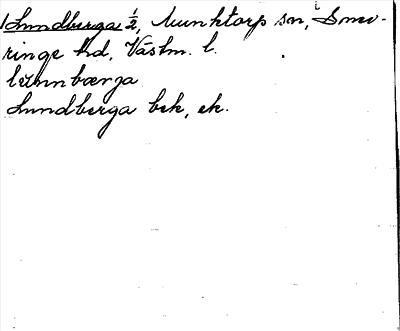 Lundberga ½, Munktorp sn, Snev-
ringe hd, Västm. l.
lünnbærja
Lundberga bek, ek.